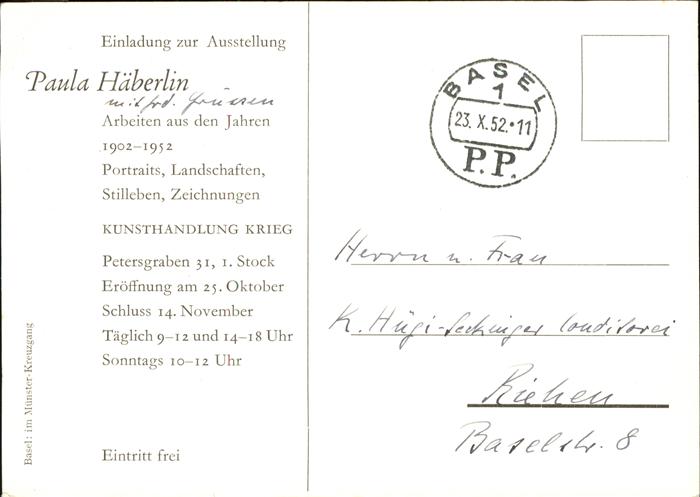 Einladung zur Ausstellung
Paula Häberlin
mit frd. Grüssen
Arbeiten aus den Jahren
1902–1952
Portraits, Landschaften,
Stilleben, Zeichnungen
KUNSTHANDLUNG KRIEG
Petersgraben 31, 1. Stock
Eröffnung am 25. Oktober
Schluss 14. November
Täglich 9–12 und 14–18 Uhr
Sonntags 10–12 Uhr
Eintritt frei
Basel: im Münster-Kreuzgang
BASEL
1
23. X. 52.•11
P.P.
Herrn u. Frau
K. Hügi-Seckinger Conditorei
Riehen
Baselstr. 8